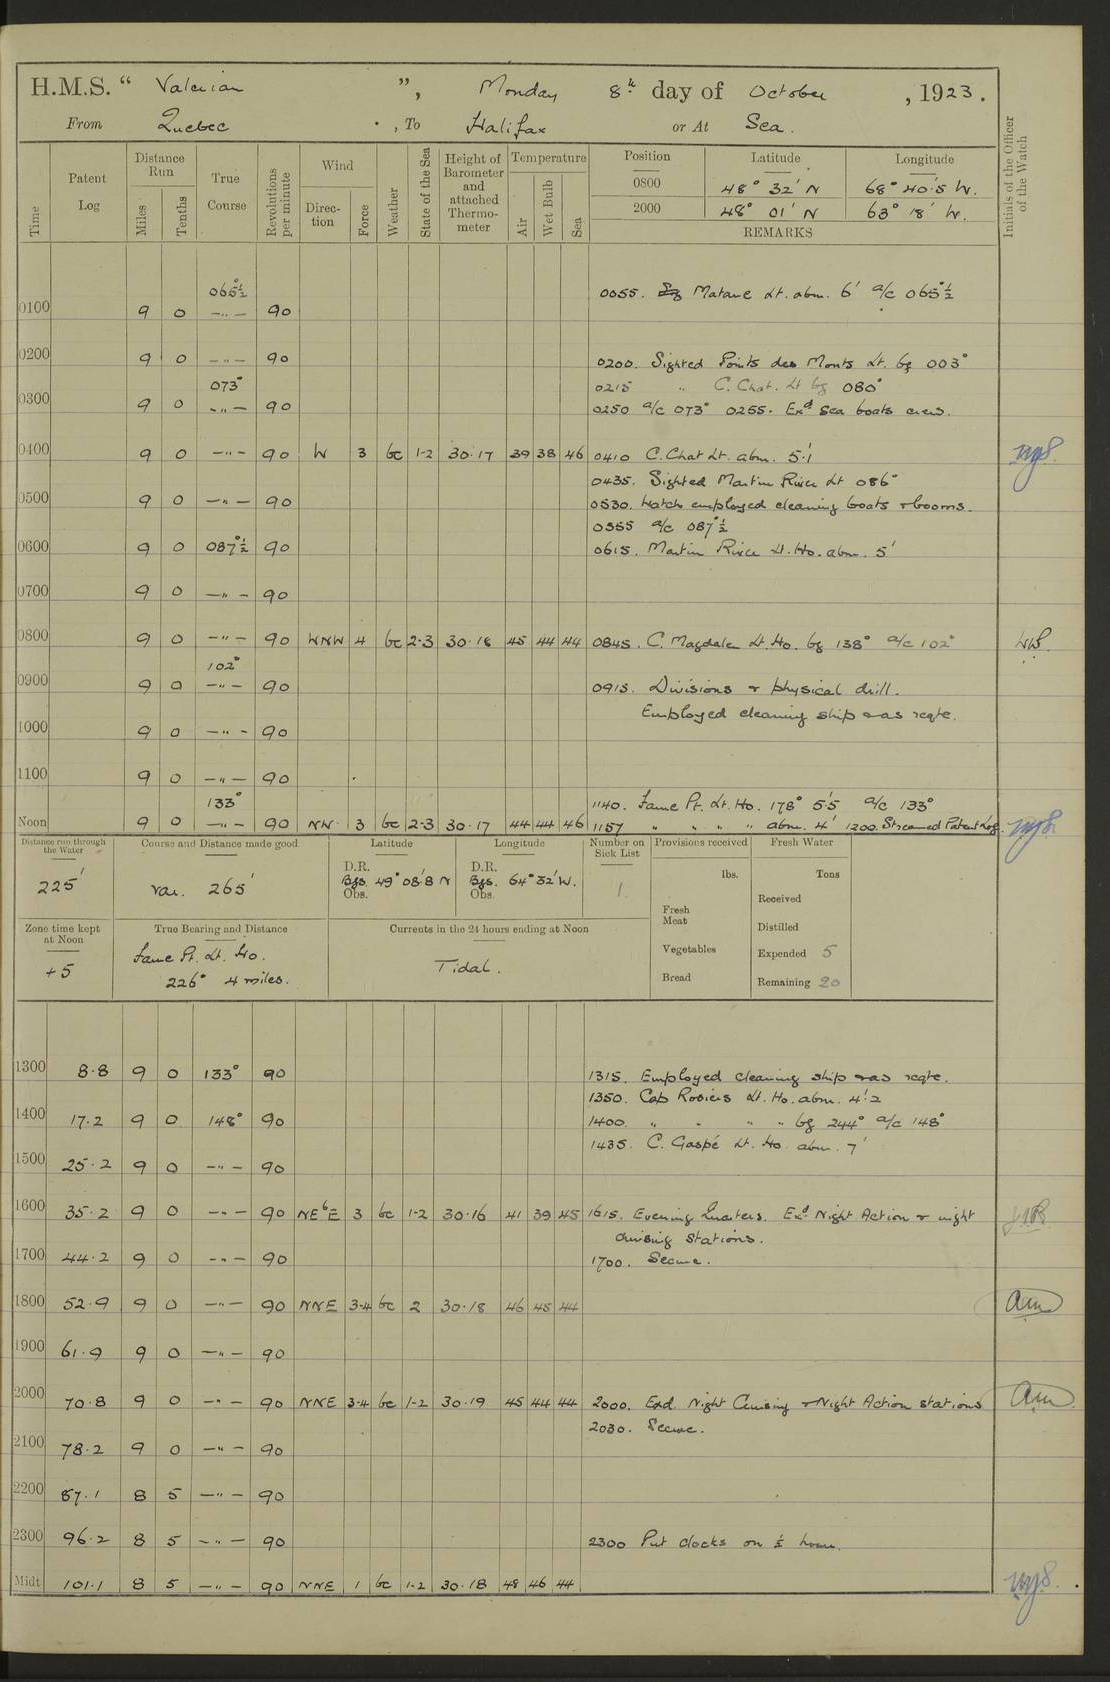 H.M.S. “ Valerian ”, Monday 8th day of October , 1923.
From Quebec , To Halifax or At Sea.
Time
Patent Log
Distance Run
Miles
Tenths
True Course
Revolutions per minute
Wind
Direc-tion
Force
Weather
State of the Sea
Height of Barometer and attached Thermo-meter
Temperature
Air
Wet Bulb
Sea
Position Latitude Longitude
0800 48° 32' N 68° 40·5 W.
2000 48° 01' N 63° 18' W.
REMARKS
Initials of the Officer of the Watch
065°½ 0055. Matane Lt. abm. 6' a/c 065°½
0100 9 0 —"— 90
0200 9 0 —"— 90 0200. Sighted Points des Monts Lt. bg 003°
073° 0215 " C. Chat. Lt bg 080°
0300 9 0 —"— 90 0250 a/c 073° 0255. Exd Sea boats crews.
0400 9 0 —"— 90 W 3 bc 1-2 30·17 39 38 46 0410 C. Chat Lt. abm. 5'.1
0435. Sighted Martin River Lt 086°
0500 9 0 —"— 90 0530. Watch employed cleaning boats & booms.
0555 a/c 087°½
0600 9 0 087°½ 90 0615. Martin River Lt. Ho. abm. 5'
0700 9 0 —"— 90
0800 9 0 —"— 90 WNW 4 bc 2-3 30·18 45 44 44 0845. C. Magdalen Lt. Ho. bg 138° a/c 102°
102°
0900 9 0 —"— 90 0915. Divisions & physical drill.
Employed cleaning ship & as reqte.
1000 9 0 —"— 90
1100 9 0 —"— 90
133° 1140. Fame Pt. Lt. Ho. 178° 5'.5 a/c 133°
Noon 9 0 —"— 90 NW 3 bc 2-3 30·17 44 44 46 1157 " " " " abm. 4' 1200. Streamed Patent Log.
Distance run through the Water
225'
Course and Distance made good
Var. 265'
Latitude
D.R.
Bgs. 49° 08'.8 N
Obs.
Longitude
D.R.
Bgs. 64° 32' W.
Obs.
Number on Sick List
1
Provisions received
lbs.
Fresh Meat
Vegetables
Bread
Fresh Water
Tons
Received
Distilled
Expended 5
Remaining 20
Zone time kept at Noon
+5
True Bearing and Distance
Fame Pt. Lt. Ho.
226° 4 miles.
Currents in the 24 hours ending at Noon
Tidal.
1300 8·8 9 0 133° 90 1315. Employed cleaning ship & as reqte.
1350. Cap Rosiers Lt. Ho. abm. 4'.2
1400 17·2 9 0 148° 90 1400. " " " " bg 244° a/c 148°
1435. C. Gaspé Lt. Ho. abm. 7'
1500 25·2 9 0 —"— 90
1600 35·2 9 0 —"— 90 NEbE 3 bc 1-2 30·16 41 39 45 1615. Evening Quarters. Exd Night Action & night
cruising stations.
1700 44·2 9 0 —"— 90 1700. Secure.
1800 52·9 9 0 —"— 90 NNE 3-4 bc 2 30·18 46 45 44
1900 61·9 9 0 —"— 90
2000 70·8 9 0 —"— 90 NNE 3-4 bc 1-2 30·19 45 44 44 2000. Exd. Night Cruising & Night Action stations
2030. Secure.
2100 78·2 9 0 —"— 90
2200 87·1 8 5 —"— 90
2300 96·2 8 5 —"— 90 2300 Put clocks on ½ hour.
Midt 101·1 8 5 —"— 90 NNE 1 bc 1-2 30·18 48 46 44